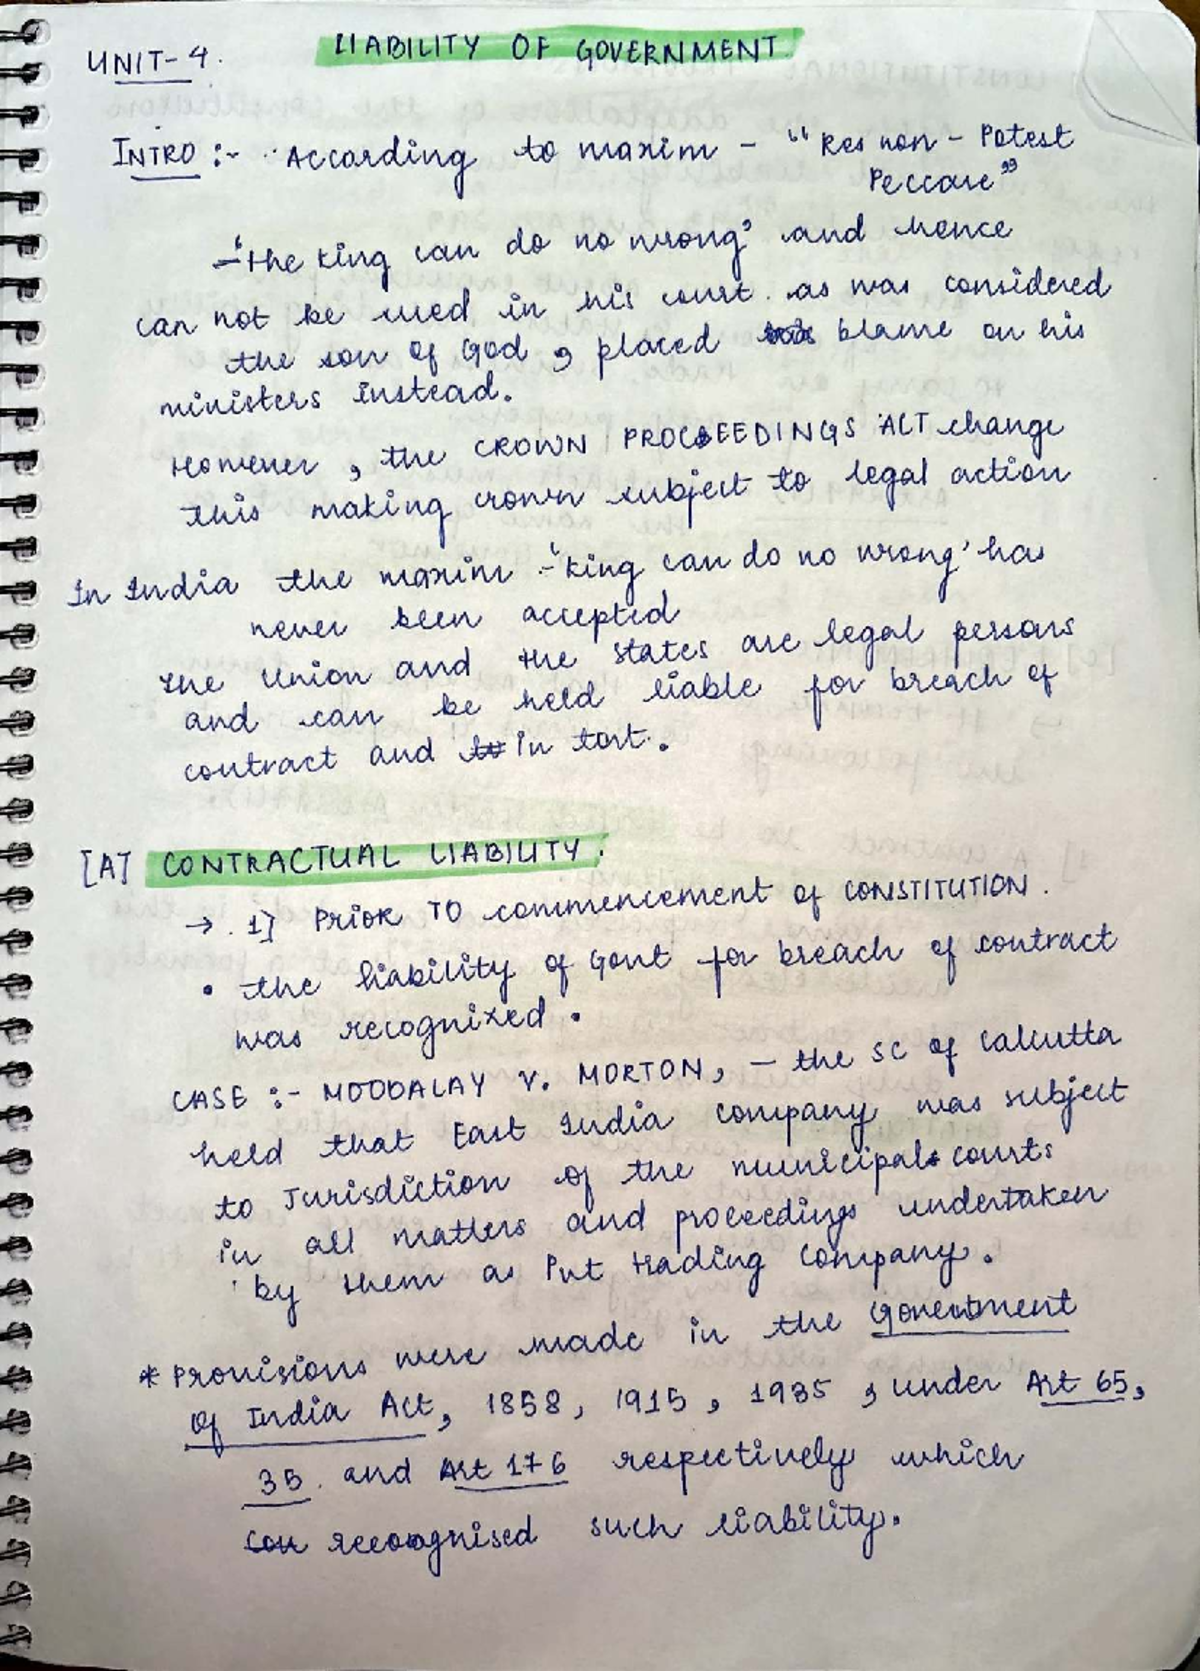 UNIT-4.
LIABILITY OF GOVERNMENT.
INTRO :- According to maxim - "Res non - Potest
Peccare"
- 'the king can do no wrong' and hence
can not be sued in his court as was considered
the son of God, placed blame on his
ministers instead.
However, the CROWN PROCEEDINGS ACT change
this making crown subject to legal action
In India the maxim - 'king can do no wrong' has
never been accepted
The Union and the states are legal persons
and can be held liable for breach of
contract and in tort.
[A] CONTRACTUAL LIABILITY.
→ 1] PRIOR TO commencement of CONSTITUTION.
• the liability of Govt for breach of contract
was recognized.
CASE :- MOODALAY V. MORTON, - the SC of Calcutta
held that East India company was subject
to Jurisdiction of the municipal courts
in all matters and proceedings undertaken
by them as Pvt trading company.
* Provisions were made in the Government
of India Act, 1858, 1915, 1935, under Art 65,
35. and Art 176 respectively which
recoognised such liability.